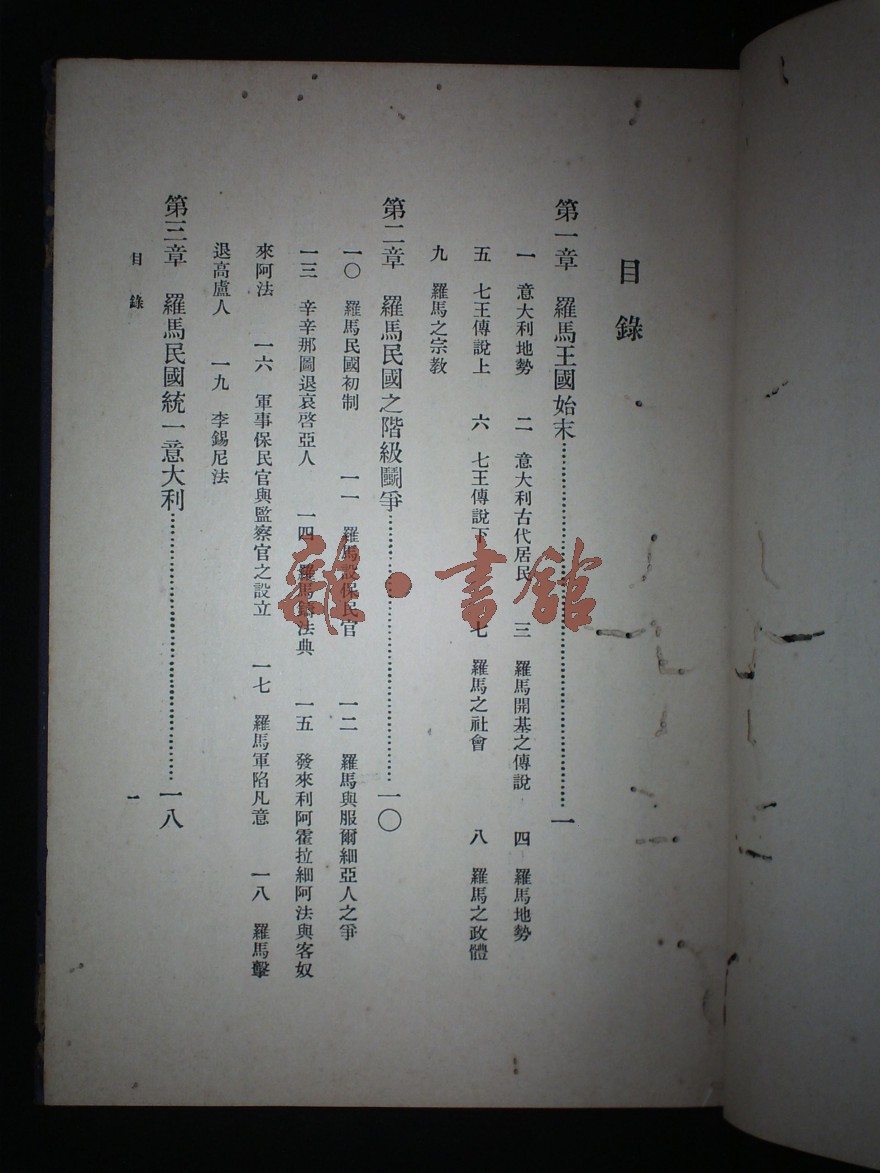 目錄
第一章 羅馬王國始末……一
一 意大利地勢 二 意大利古代居民 三 羅馬開基之傳說 四 羅馬地勢
五 七王傳說上 六 七王傳說下 七 羅馬之社會 八 羅馬之政體
九 羅馬之宗教
第二章 羅馬民國之階級鬭爭……一〇
一〇 羅馬民國初制 一一 羅馬設保民官 一二 羅馬與服爾細亞人之爭
一三 辛辛那圖退哀啓亞人 一四 羅馬鑄法典 一五 發來利阿霍拉細阿法與客奴
來阿法 一六 軍事保民官與監察官之設立 一七 羅馬軍陷凡意 一八 羅馬擊
退高盧人 一九 李錫尼法
第三章 羅馬民國統一意大利……一八
目錄 一
雜·書館